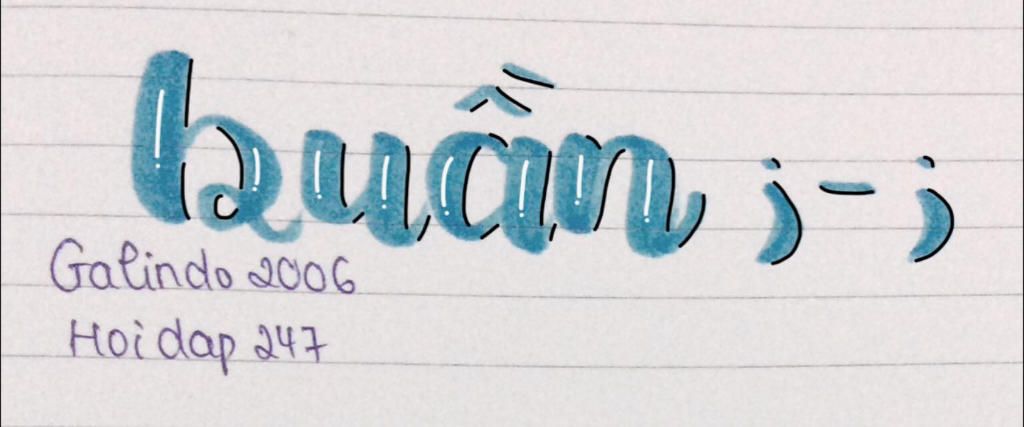 buần ;-;
Galindo 2006
Hoidap 247